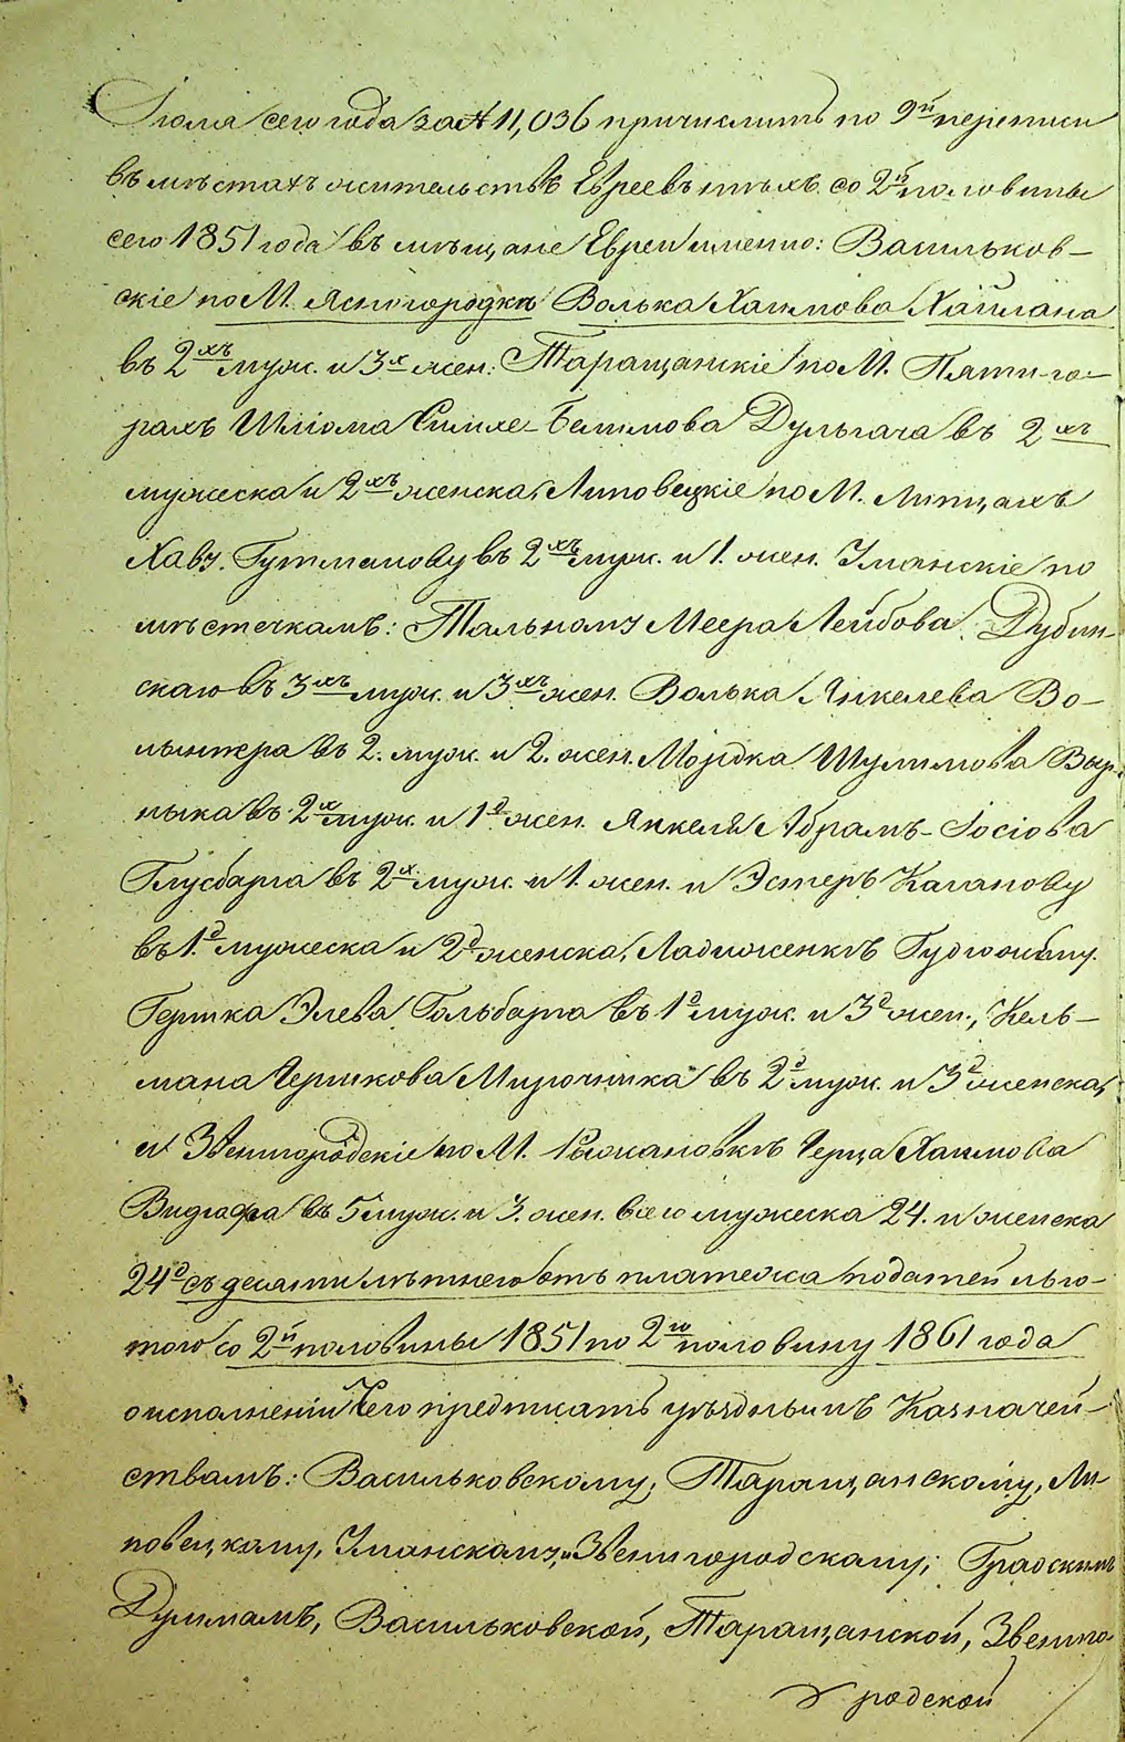 Іюля сего года за № 11,036 причислить по 9й переписи
въ мѣстахъ жительствъ Евреевъ тѣхъ со 2й половины
сего 1851 года въ мѣщане Евреи именно: Васильков-
скіе по М. Ясногородкѣ Волька Хаимова Каплана
въ 2хъ муж. и 3х жен. Таращанскіе по М. Пятиго-
рахъ Шліома Симхе-Беримова Дульгача въ 2хъ
мужеска и 2хъ женска, Липовецкіе по М. Липцахъ
Хаву Гутманову въ 2хъ муж. и 1. жен. Уманскіе по
мѣстечкамъ: Тальному Меера Лейбова Дубин-
скаго въ 3хъ муж. и 3хъ жен. Волька Янкелева Во-
лынкера въ 2. муж. и 2. жен. Мордка Шулимова
ныка въ 2х муж. и 1й жен. Янкеля Абрамъ-Іосіова
Глусбарга въ 2х муж. и 1. жен. и Эстеръ Каганову
въ 1й мужеска и 2й женска, Ладыженкѣ
Гершка Элева Гольбарга въ 1й муж. и 3й жен., Кель-
мана Гершкова Мирочника въ 2й муж. и 3й женска,
и Звенигородскіе по М. Рыжановкѣ Герца Хаимова
въ 5 муж. и 3. жен. всего мужеска 24. и женска
24й съ десятилѣтнею отъ платежа податей льго-
тою со 2й половины 1851 по 2ю половину 1861 года
о исполненіи чего предписать уѣзднымъ Казначей-
ствамъ: Васильковскому, Таращанскому, Ли-
повецкому, Уманскому, и Звенигородскому; Градскимъ
Думамъ, Васильковской, Таращанской, Звениго-
родской